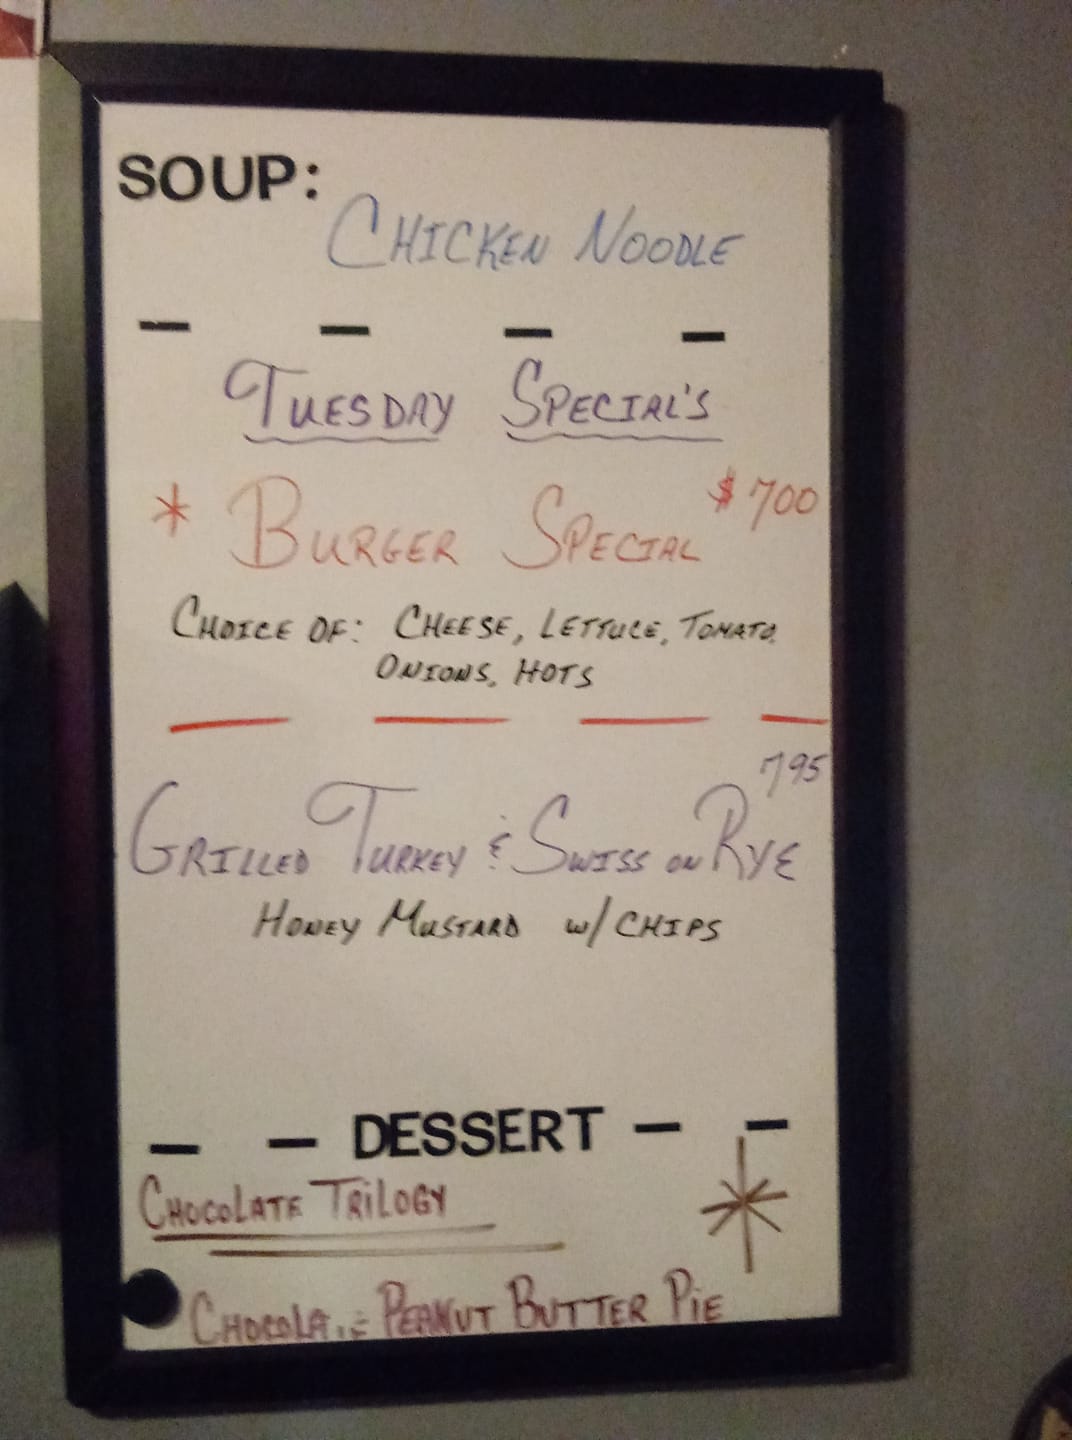 SOUP:
CHICKEN NOODLE
TUESDAY SPECIAL'S
* BURGER SPECIAL $700
CHOICE OF: CHEESE, LETTUCE, TOMATO,
ONIONS, HOTS
795
GRILLED TURKEY & SWISS ON RYE
HONEY MUSTARD w/ CHIPS
- - DESSERT - -
CHOCOLATE TRILOGY
PEANUT BUTTER PIE